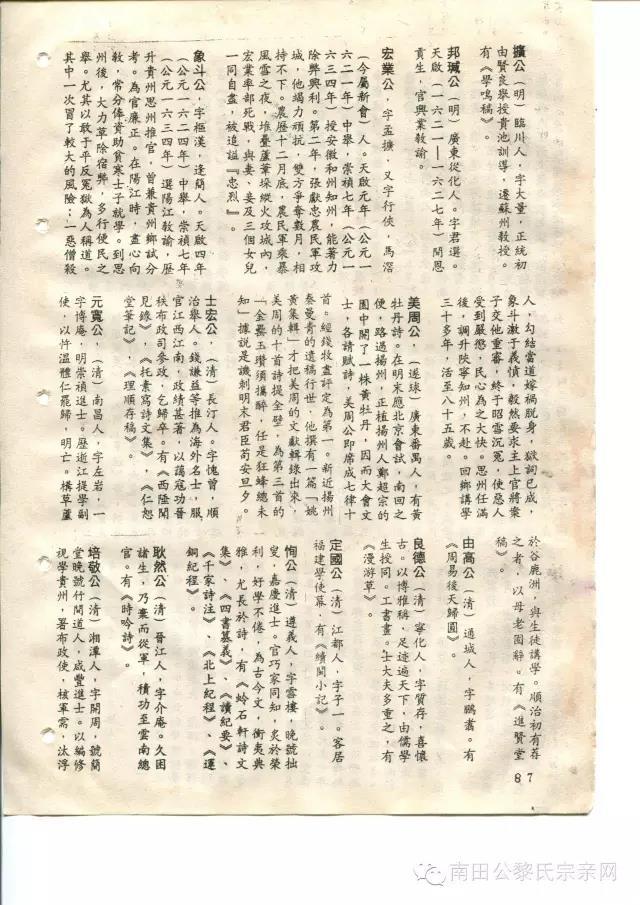 擴公（明）臨川人，字大量，正統初
由賢良舉授貴池訓導，遷蘇州教授。
有《學鳴稿》。
邦瑊公（明）廣東從化人。字君選。
天啟（一六二一——一六二七年）間恩
貢生，官興業教諭。
宏業公，字孟擴，又字行俠，馬滘
（今屬新會）人。天啟元年（公元一
六二一年）中舉，崇禎七年（公元一
六三四年）授安徽和州知州，能著力
除弊興利。第二年，張獻忠農民軍攻
城，他竭力頑抗，雙方爭奪數月，相
持不下。農歷十二月底，農民軍乘暴
風雪之夜，堆疊蘆葦垛縱火攻城內，
宏業率部死戰，與妻、妾及三個女兒
一同自盡，被追謚『忠烈』。
象斗公，字樞漢，逢簡人。天啟四年
（公元一六二四年）中舉，崇禎七年
（公元一六三四年）選陽江教諭，歷
升貴州思州推官，曾兼貴州鄉試分
考。為官廉正。在陽江時，盡心向
教，常分俸資助貧寒士子就學。到思
州後，大力革除宿弊，多行便民之
舉。尤其以敢于平反冤獄為人稱道。
其中一次冒了較大的風險：一惡僧殺
人，勾結當道嫁禍脫身，獄詞已成，
象斗激于義憤，毅然要求主上官將案
子交他重審，終于昭雪沉冤，使惡人
受到嚴懲，民心為之大快。思州任滿
後，調升陝寧知州，不赴。回鄉講學
三十多年，活至八十五歲。
美周公，（遂球）廣東番禺人，有黃
牡丹詩。在明末應北京會試，南回之
便，路過揚州，正植揚州人鄭超宗的
園中開了一株黃牡丹，因而大會文
士，各請賦詩，美周公即席成七律十
首。經錢牧盦評定為第一。新近揚州
秦曼青的遺稿行世，他撰有一篇「姚
黃集輯」才把美周的文獻輯錄出來，
美周的十首詩提全璧，為第三首的
「金罍玉瓚須攜醉，任是狂蜂總未
知」據說是譏刺明末君臣苟安旦夕。
士宏公，（清）長汀人。字愧曾，順
治舉人。錢謙益等推為海外名士，服
官江西江南，政績甚著，以蕩寇功晉
秩布政司參政，乞歸卒。有《西陲聞
見錄》，《托素寫詩文集》，《仁恕
堂筆記》，《理順存稿》。
元寬公，（清）南昌人，字左岩，一
字博庵，明崇禎進士。歷逝江提學副
使，以忤溫體仁罷歸，明亡。構草蘆
於谷鹿洲，與生徒講學。順治初有荐
之者，以母老固辭。有《進賢堂
稿》。
由高公（清）通城人，字鵬翥。有
《周易後天歸圓》。
良德公（清）寧化人，字質存，喜懷
古。以博雅稱，足迹遍天下，由儒學
生授同。工書畫。士大夫多重之，有
《漫游草》。
定國公（清）江都人，字于一。客居
福建學使幕，有《續聞小記》。
恂公（清）遵義人，字雪樓，晚號拙
叟，嘉慶進士。官巧家同知，炙於榮
利，好學不倦，為古今文，衝夷典
雅，尤長於詩，有《蛉石軒詩文
集》、《四書蓋義》、《讀紀要》、
《千家詩注》、《北上紀程》、《運
銅紀程》。
耿然公（清）晉江人，字介庵。久困
諸生，乃棄而從軍，積功至雲南總
官。有《時吟詩》。
培敬公（清）湘潭人，字開周，號簡
堂晚號竹閒道人，咸豐進士。以編修
視學貴州，署布政使，核軍需，汰浮
87
南田公黎氏宗亲网